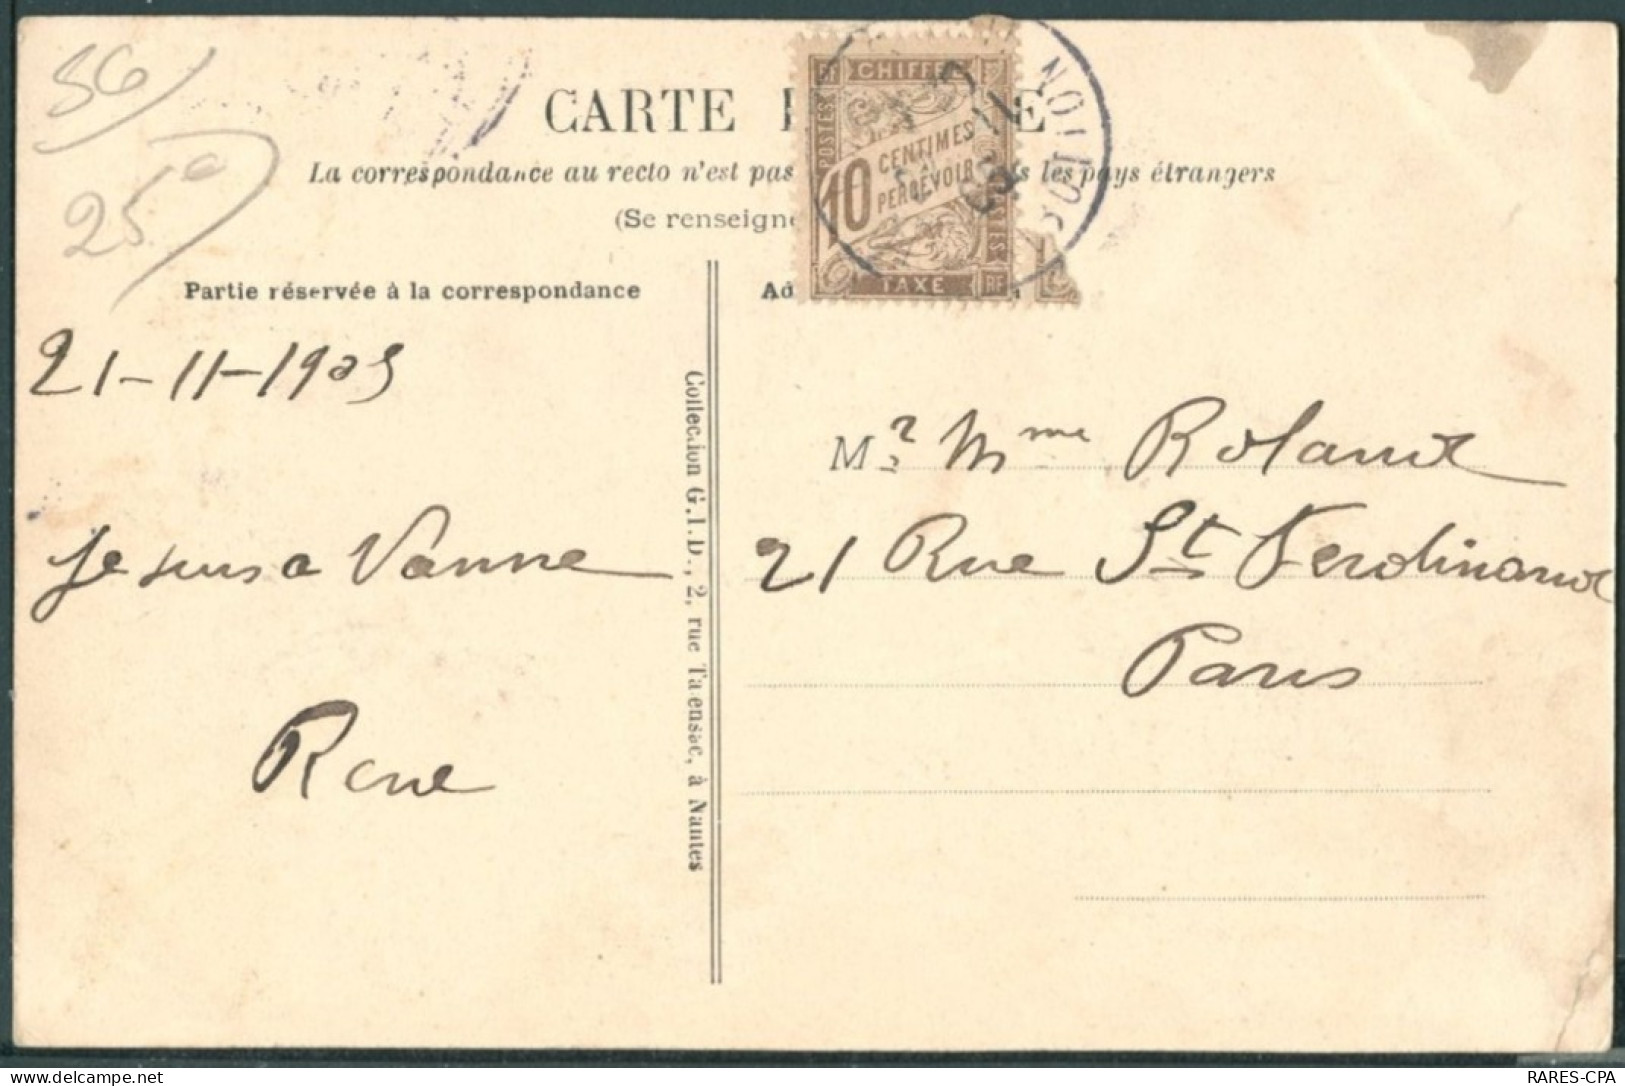 56
25
CARTE
La correspondance au recto n'est pas
s les pays étrangers
(Se renseigne
CHIFFRE
POSTES
10 CENTIMES
PERCEVOIR
TAXE
RF
Partie réservée à la correspondance
Ad
21-11-1905
Je suis a Vanne
Rene
Collection G.I.D., 2, rue Talensac, à Nantes
Mr Mme Roland
21 Rue St Ferdinand
Paris
RARES-CPA